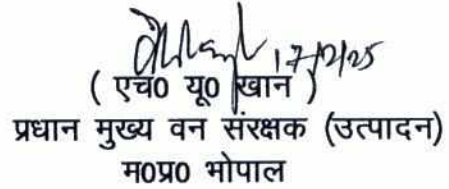 17/2/25
( एच0 यू0 खान )
प्रधान मुख्य वन संरक्षक (उत्पादन)
म0प्र0 भोपाल